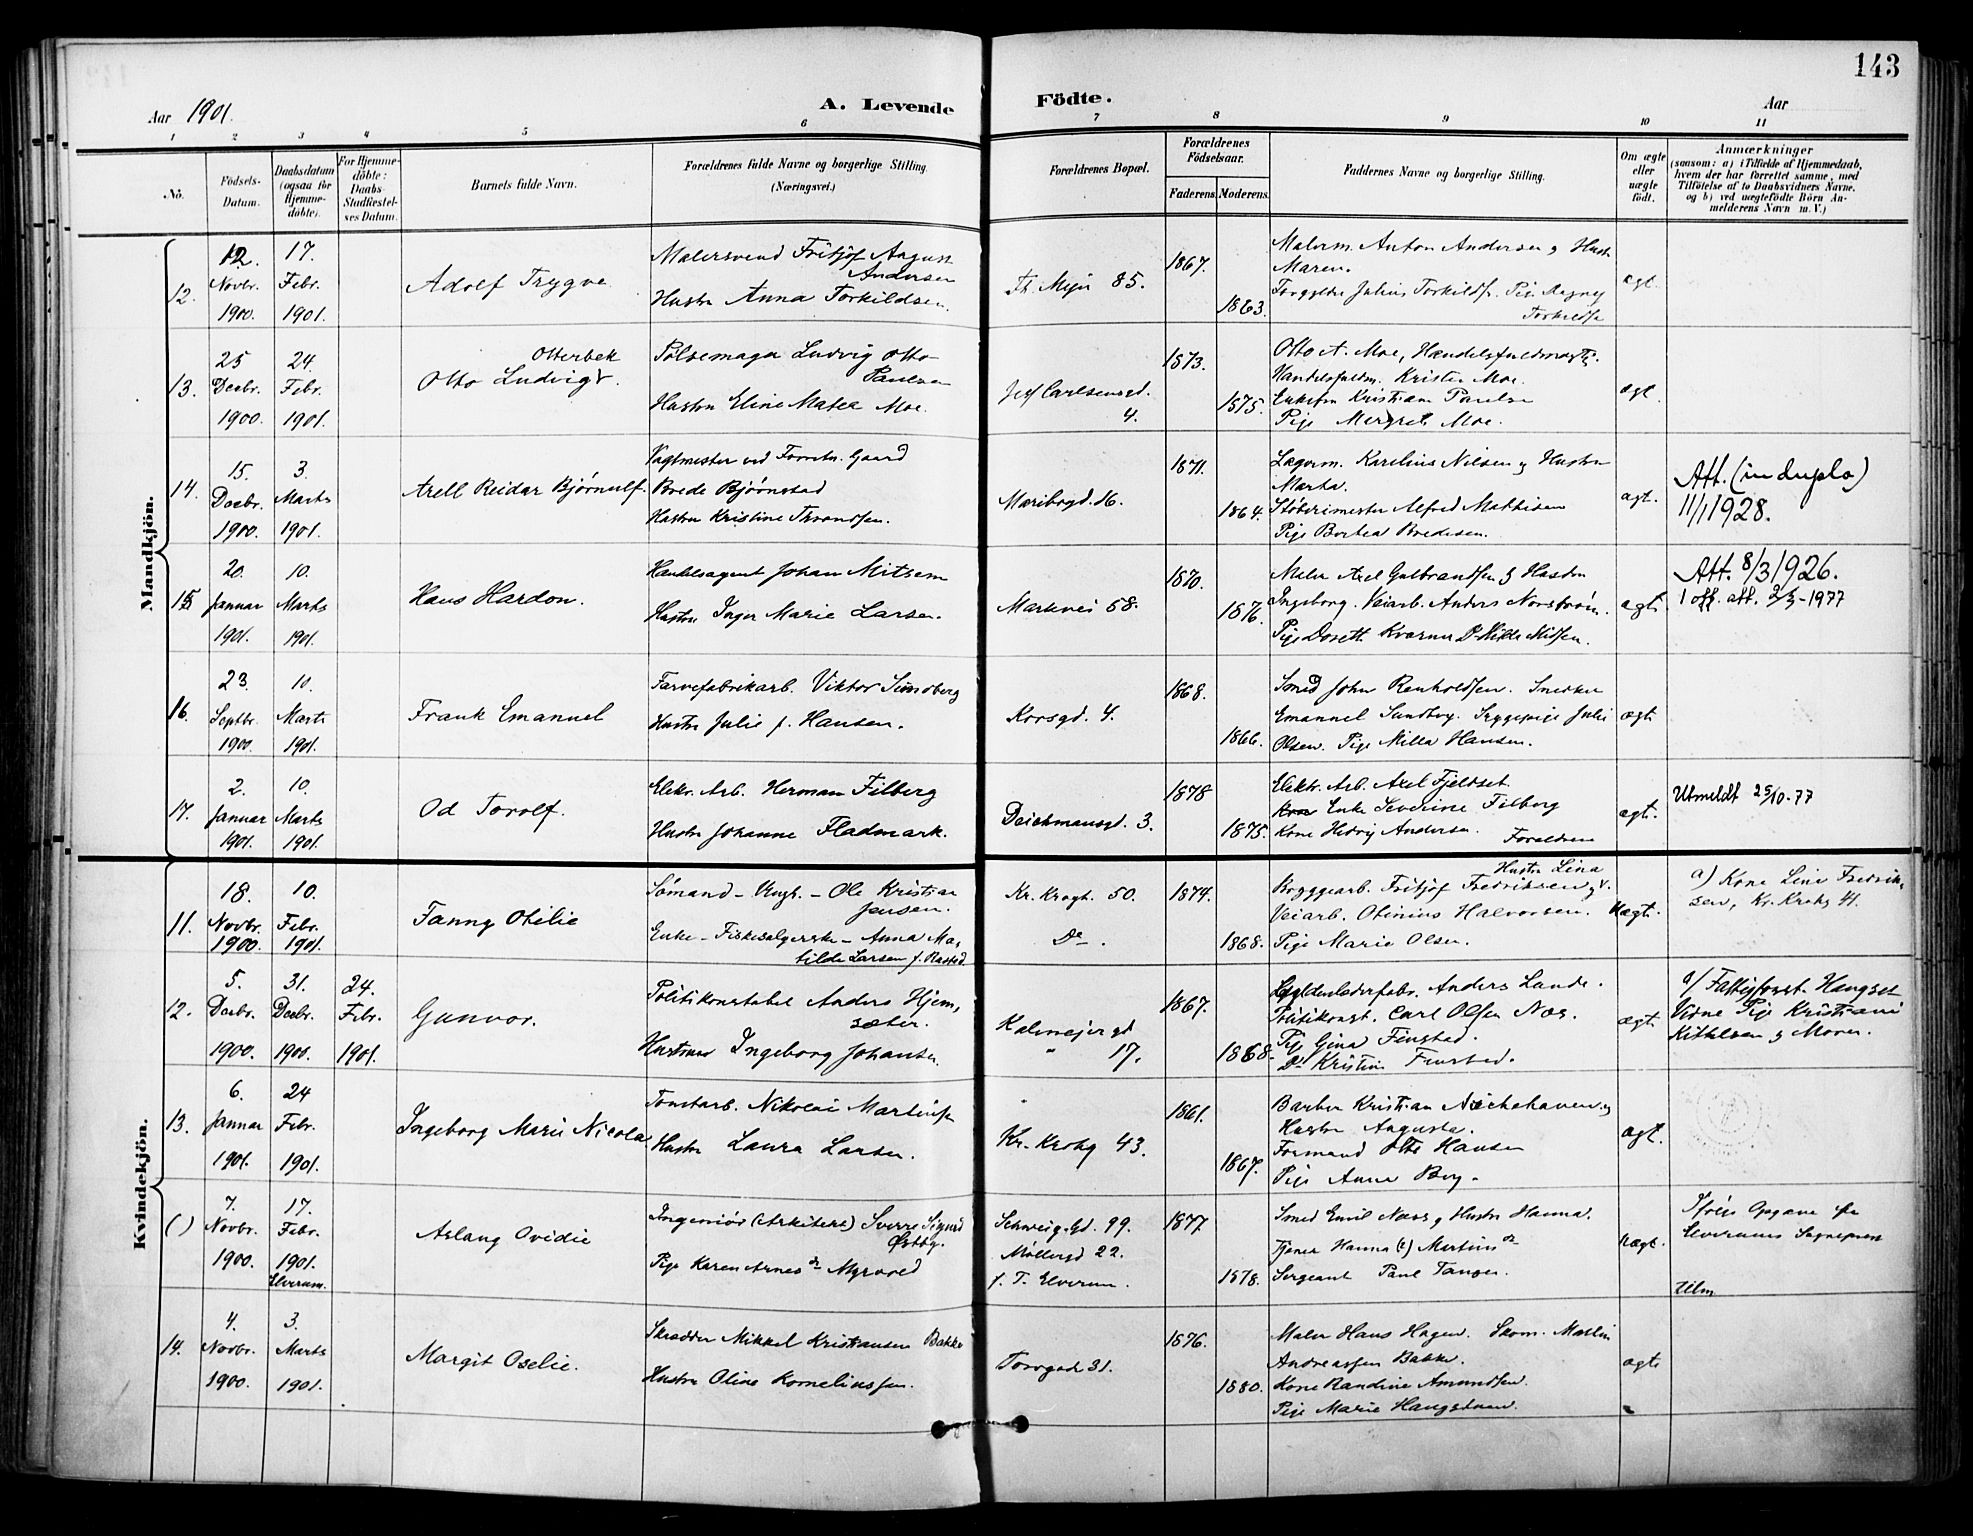 143
Aar 1901.
A. Levende Födte.
Aar
1 2 3 4 5 6 7 8 9 10 11
No.
Födsels-Datum.
Daabsdatum (ogsaa for Hjemme-döbte).
For Hjemme-döbte: Daabs-Stadfæstel-ses Datum.
Barnets fulde Navn.
Forældrenes fulde Navne og borgerlige Stilling. (Næringsvei.)
Forældrenes Bopæl.
Forældrenes Födselsaar.
Faderens. Moderens.
Faddernes Navne og borgerlige Stilling.
Om ægte eller uægte födt.
Anmærkninger
(saasom: a) i Tilfælde af Hjemmedaab,
hvem der har forrettet samme, med
Tilföielse af to Daabsvidners Navne,
og b) ved uægtefödte Börn An-
melderens Navn m. V.)
Mandkjön.
12.
12. Novbr. 1900.
17. Febr. 1901.
Adolf Trygve.
Malersvend Fritjof August
Andersen
Hustru Anna Torkildsen.
85.
1867.
1863.
Malerm. Anton Andersen og Hustru
Maren.
Julius Torkilds. Pige
ægt.
13.
25 Decbr. 1900.
24. Febr. 1901.
Otterbek
Otto Ludvig
Pølsemager Ludvig Otto
Paulsen
Hustru Eline Matea Moe.
Carlsensgd.
4.
1873.
1875.
Otto A. Moe,
Handelsfuldm. Krister Moe.
Kristian Paulsen
Pige Margrete Moe.
ægt.
14.
15. Decbr. 1900.
3. Marts 1901.
Arell Reidar Bjørnulf.
Vagtmester ved Gaard
Brede Bjørnstad
Hustru Kristine Throndsen.
Maribogd. 16.
1871.
1864.
Lagerm. Karelius Nilsen og Hustru
Marta.
Støberimester Alfred Mathisen
Pige Bertea Bredesen.
ægt.
Att. (in duplo)
11/1 1928.
15
20. Januar 1901.
10. Marts 1901.
Hans Hardon.
Handelsagent Johan Mitsem
Hustru Inger Marie Larsen.
Markvei 58.
1870.
1876.
Maler Axel Gulbrandsen og Hustru
Ingeborg. Veiarb. Anders Norstrøm.
Pige Dorett Kværner
ægt.
Att. 8/3 1926.
1 off. att. 2/3-1977
16.
23. Septbr. 1900.
10. Marts 1901.
Frank Emanuel
Farvefabrikarb. Viktor Sundberg
Hustru Julie f. Hansen.
Korsgd. 4.
1868.
1866.
Smed John Renholdsen. Snedker
Emanuel Sundberg. Sygepige Julie
Olsen. Pige Milla Hansen.
ægt.
17.
2. Januar 1901.
10. Marts 1901.
Od Torolf.
Elektr. Arb. Herman Filberg
Hustru Johanne Fladmark.
Deichmansgd. 3.
1878
1875.
Elektr. Arb. Axel Fjeldset.
Enke Severine Filberg
Kone Hedvig Andersen.
Forældrene
ægt.
Utmeldt 25/10-77
Kvindekjön.
11.
18. Novbr. 1900.
10. Febr. 1901.
Fanny Otilie
Sømand - Ungk. - Ole Kristian
Jensen.
Enke - Fiskesælgerske - Anna Ma-
tilde Larsen f.
Kr. Krogt. 50.
Do.
1874.
1868.
Hustru Lina
Bryggearb. Fritjof Fredriksen
Veiarb. Otinius Halvorsen.
Pige Marie Olsen.
uægt.
a) Kone Line Fredrik-
sen, Kr. Krohg 41.
12.
5. Decbr. 1900.
31. Decbr. 1900.
24. Febr. 1901.
Gunvor.
Politikonstabel Anders Hjem-
sæter.
Hustru Ingeborg Johansen
Kalmejergd
" 17.
1867.
1868.
Gyldenlæderfabr. Anders Lande.
Politikonst. Carl Olsen Næs.
Pige Gina Finstad.
Do Kristine Finstad.
ægt
a/ Fattigforst. Haugset
Vidne Pige Kristiane
Kittelsen og Moren.
13.
6. Januar 1901.
24 Febr. 1901.
Ingeborg Marie Nicola
Tomtarb. Nikolai Martinsen
Hustru Laura Larsen.
Kr. Krohg 43.
1861.
1867.
Barber Kristian og
Hustru Augusta.
Formand Otto Hansen
Pige Anna Berg.
ægt.
( )
7. Novbr. 1900.
17. Febr. 1901.
Elverum.
Aslaug Ovidie
Ingeniør (Arkitekt) Sverre Sigurd
Østby.
Pige Karen Arnesdr Myrvold
Schweig.Gd. 99.
Møllergd 22.
f. T. Elverum.
1877
1878.
Smed Emil Næss og Hustru Hanna.
Tjener Hanna (e) Martinsdr
Sergeant Paul Tangen.
uægt.
Ifølge Opgave fra
Elverums Sognepræst
tilm
14.
4. Novbr. 1900.
3. Marts 1901.
Margit Oselie.
Skrædder Mikkel Kristiansen Bakke
Hustru Oline Korneliussen.
Torvgad 31.
1876.
1880.
Maler Hans Hagen. Skom. Martin
Andreassen Bakke.
Kone Randine Amundsen.
Pige Marie Haugstuen.
ægt.